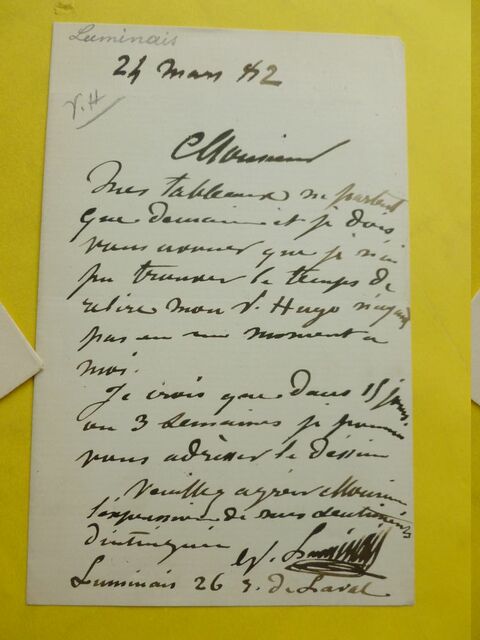 Luminais
24 mars 82
V. H
Monsieur
Mes tableaux ne partent
que demain et je dois
vous avouer que je n'ai
pu trouver le temps de
relire mon V. Hugo n'ayant
pas eu un moment a
moi.
Je crois que dans 15 jours
ou 3 semaines je pourrai
vous adresser le dessin
Veuillez agréer Monsieur
l'expression de mes sentiments
distingués
V. Luminais
Luminais 26 de Laval